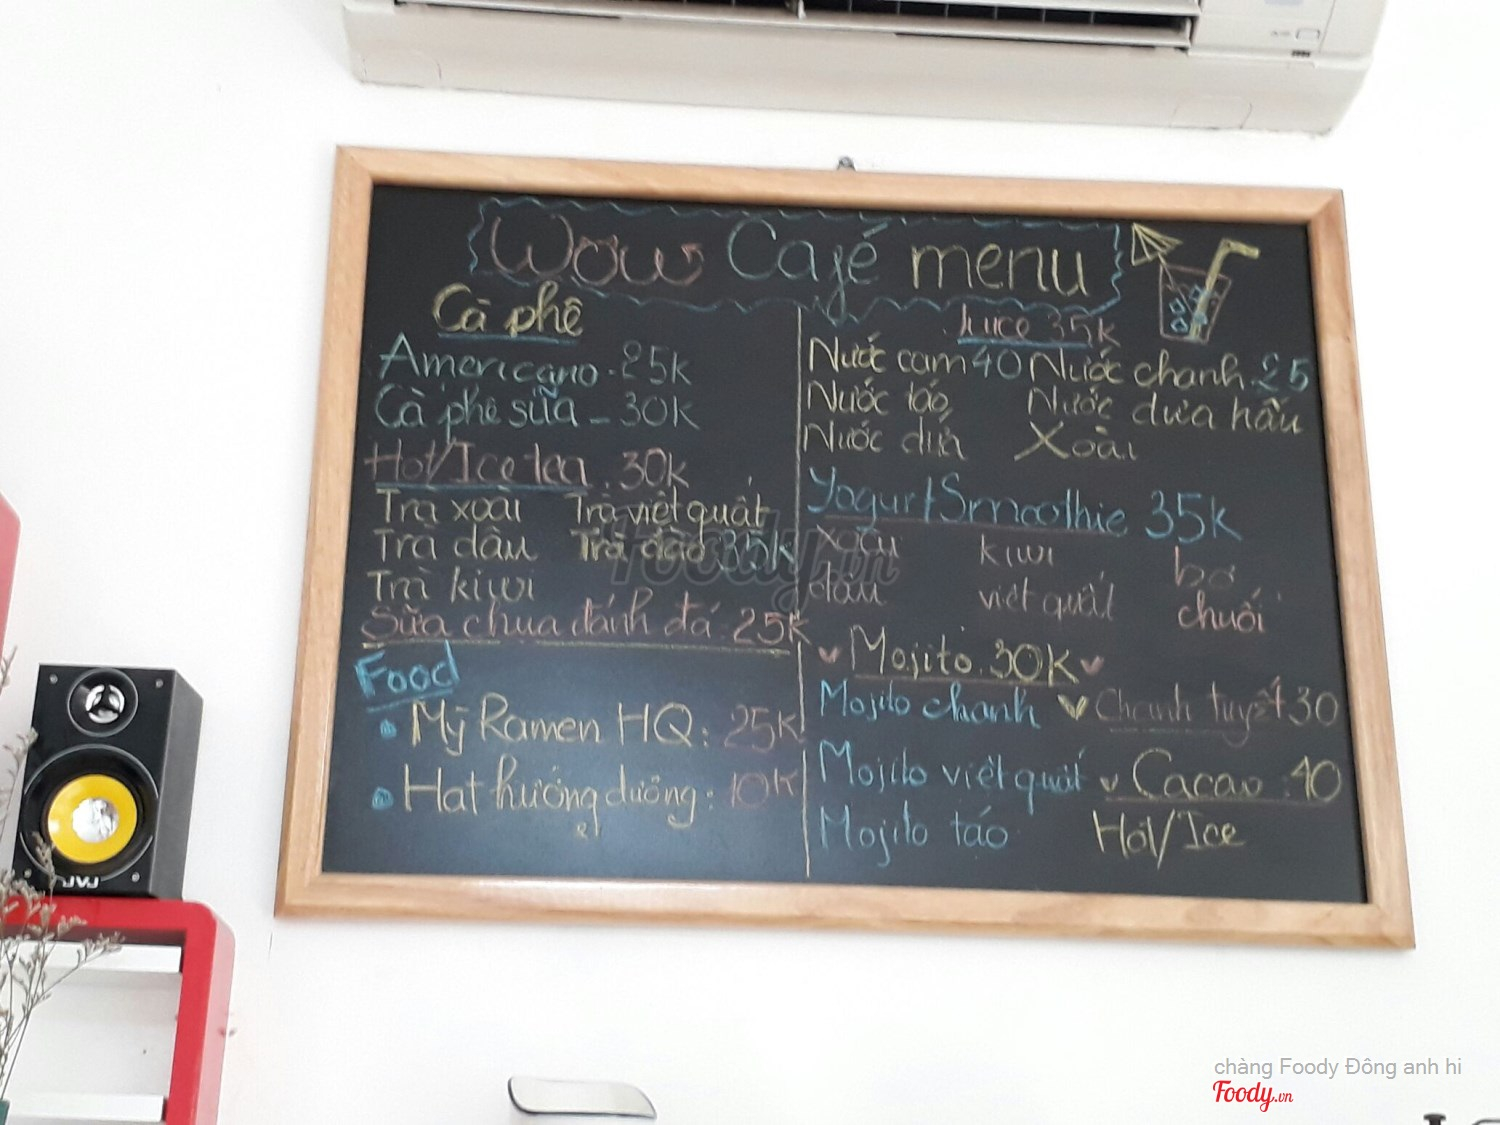 Wow Café menu
Cà phê
Americano - 25k
Cà phê sữa - 30k
Hot/Ice tea . 30k
Trà xoài Trà việt quất
Trà dâu Trà đào 35k
Trà kiwi
Sữa chua đánh đá : 25k
Food
Mỳ Ramen HQ : 25k
Hạt hướng dương : 10k
Juice 35k
Nước cam 40 Nước chanh 25
Nước táo Nước dưa hấu
Nước dứa Xoài
Yogurt/Smoothie 35k
xoài kiwi bơ
dâu việt quất chuối
Mojito . 30K
Mojito chanh Chanh tuyết 30
Mojito việt quất Cacao : 40
Mojito táo Hot/Ice
Foody.vn
JVJ
chàng Foody Đông anh hi
Foody.vn